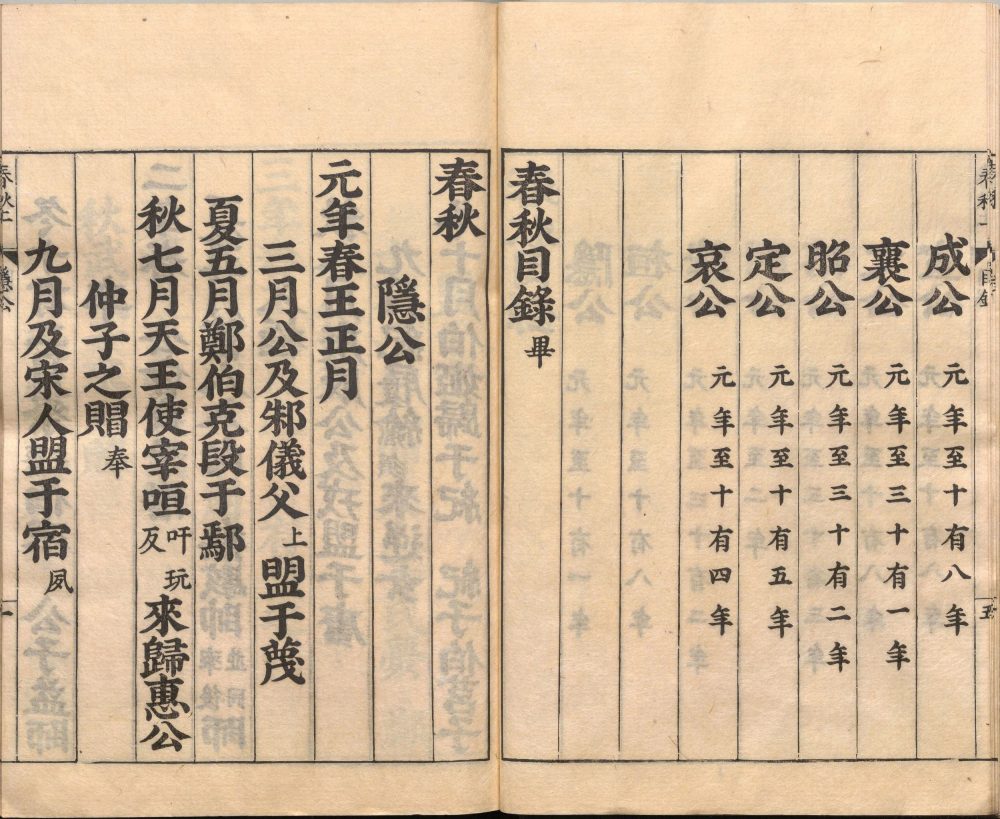 成公 元年至十有八年
襄公 元年至三十有一年
昭公 元年至三十有二年
定公 元年至十有五年
哀公 元年至十有四年
春秋目錄 畢
春秋
隱公
元年春王正月
三月公及邾儀父上盟于蔑
夏五月鄭伯克段于鄢
秋七月天王使宰咺吁玩反來歸惠公
仲子之賵奉
九月及宋人盟于宿夙
隱公